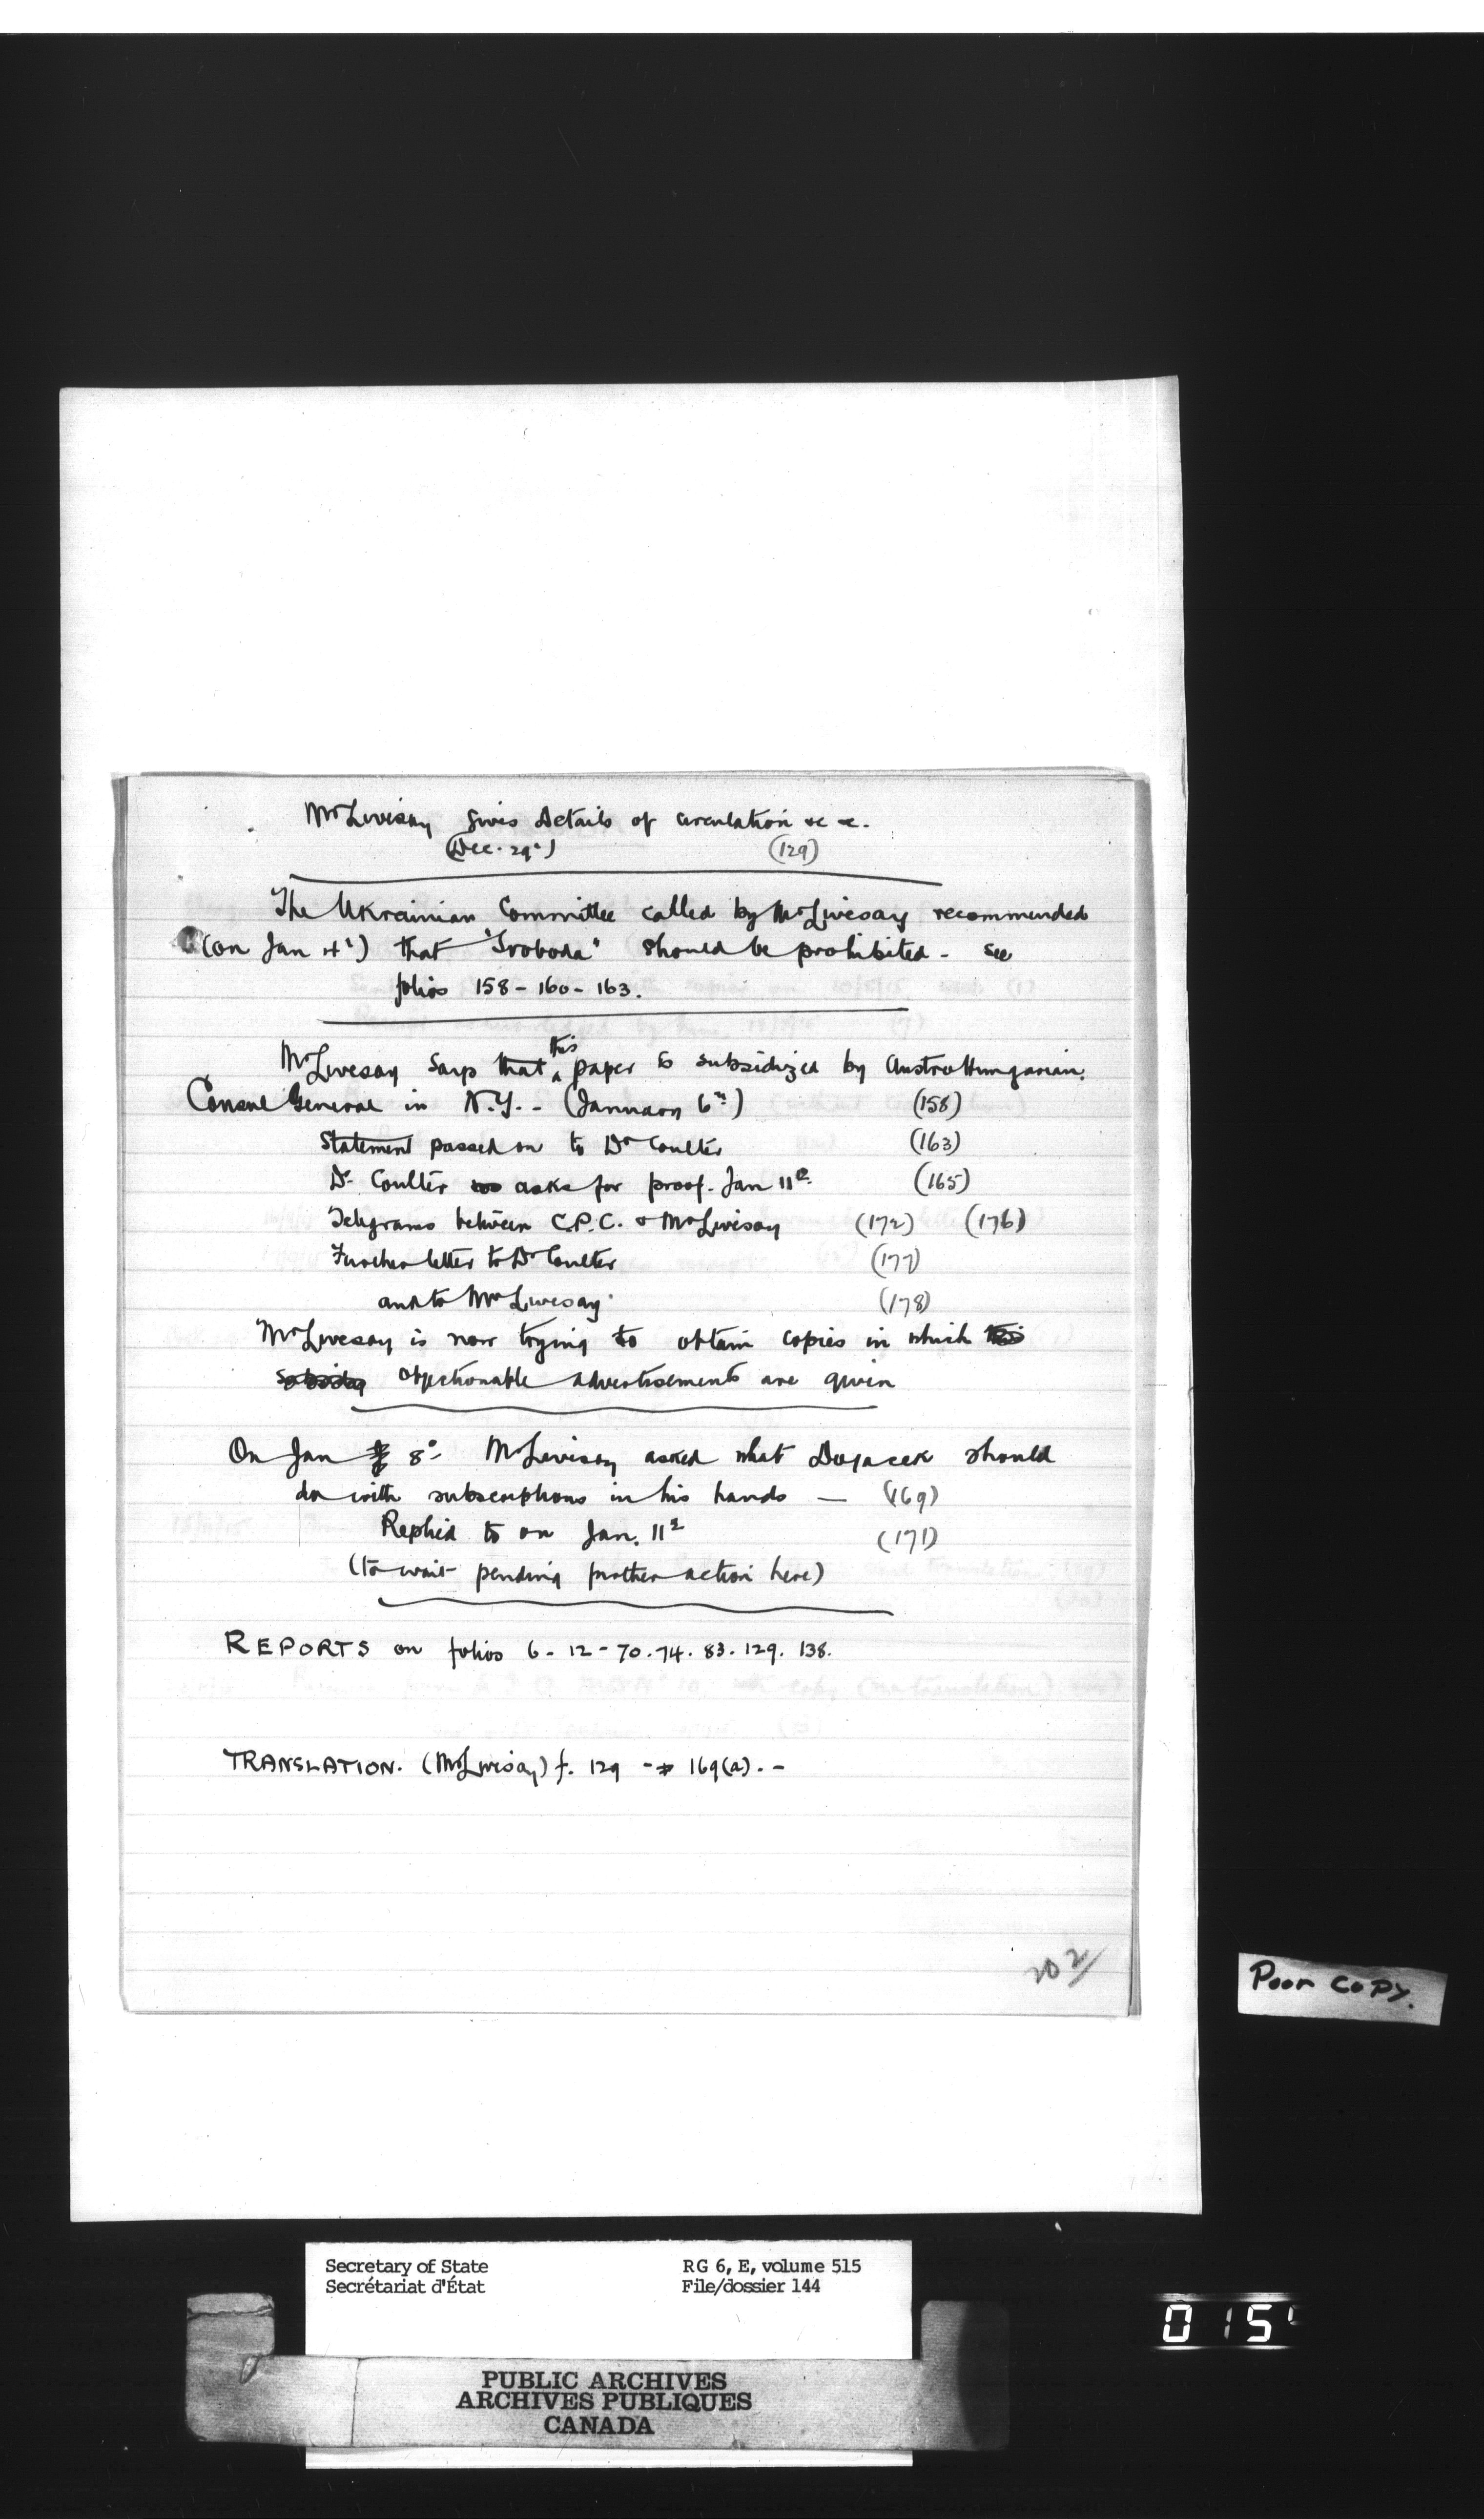 Mr Livesay gives details of circulation &c &c.
(Dec. 29th) (129)
The Ukrainian Committee called by Mr Livesay recommended
(on Jan 4th) that "Svoboda" should be prohibited - see
folios 158 - 160 - 163.
Mr Livesay says that this paper is subsidized by Austro Hungarian
Consul General in N.Y. - (January 6th) (158)
Statement passed on to Dr Coulter (163)
Dr Coulter asks for proof. Jan 11th (165)
Telegrams between C.P.C. & Mr Livesay (172) (176)
Further letter to Dr Coulter (177)
and to Mr Livesay (178)
Mr Livesay is now trying to obtain copies in which
subsidy objectionable advertisements are given
On Jan 8th Mr Livesay asked what Dojacek should
do with subscriptions in his hands — (169)
Replied to on Jan. 11th (171)
(to wait pending further action here)
REPORTS on folios 6 - 12 - 70. 74. 83. 129. 138.
TRANSLATION. (Mr Livesay) f. 129 - 169(a). -
202
Poor Copy.
Secretary of State RG 6, E, volume 515
Secrétariat d'État File/dossier 144
PUBLIC ARCHIVES
ARCHIVES PUBLIQUES
CANADA
015